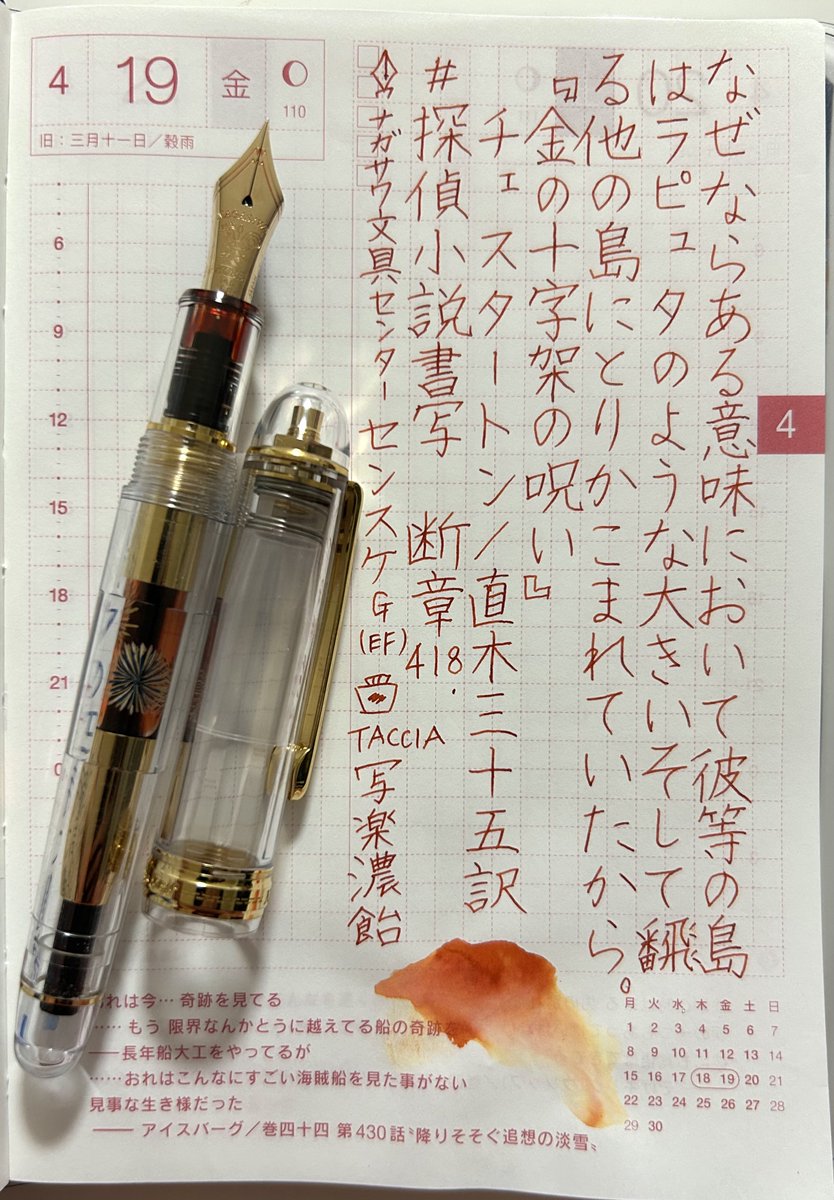 4 19 金
110
旧：三月十一日／穀雨
なぜならある意味において彼等の島
はラピュタのような大きいそして飜
る他の島にとりかこまれていたから
『金の十字架の呪い』
チェスタートン／直木三十五訳
#探偵小説書写 断章418.
ナガサワ文具センターセンスケG(EF)
TACCIA写楽濃飴
6
9
12
15
18
21
0
4
れは今… 奇跡を見てる
…… もう 限界なんかとうに越えてる船の奇跡を
――長年船大工をやってるが
……おれはこんなにすごい海賊船を見た事がない
見事な生き様だった
―― アイスバーグ／巻四十四 第430話〝降りそそぐ追想の淡雪〟
月 火 水 木 金 土 日
1 2 3 4 5 6 7
8 9 10 11 12 13 14
15 16 17 18 19 20 21
22 23 24 25 26 27 28
29 30